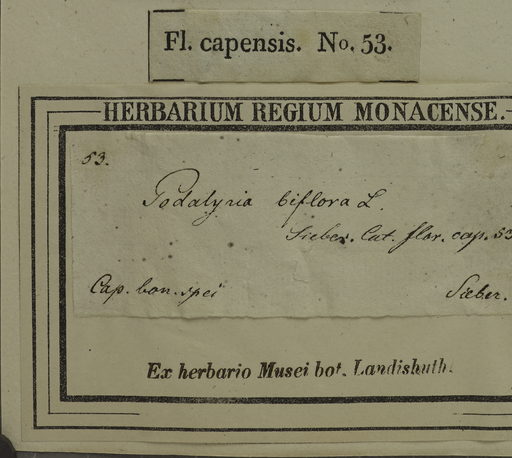 Fl. capensis. No. 53.
HERBARIUM REGIUM MONACENSE.
53.
Podalyria biflora L.
Sieber. Cat. flor. cap. 53
Cap. bon. spei
Sieber.
Ex herbario Musei bot. Landishuth.